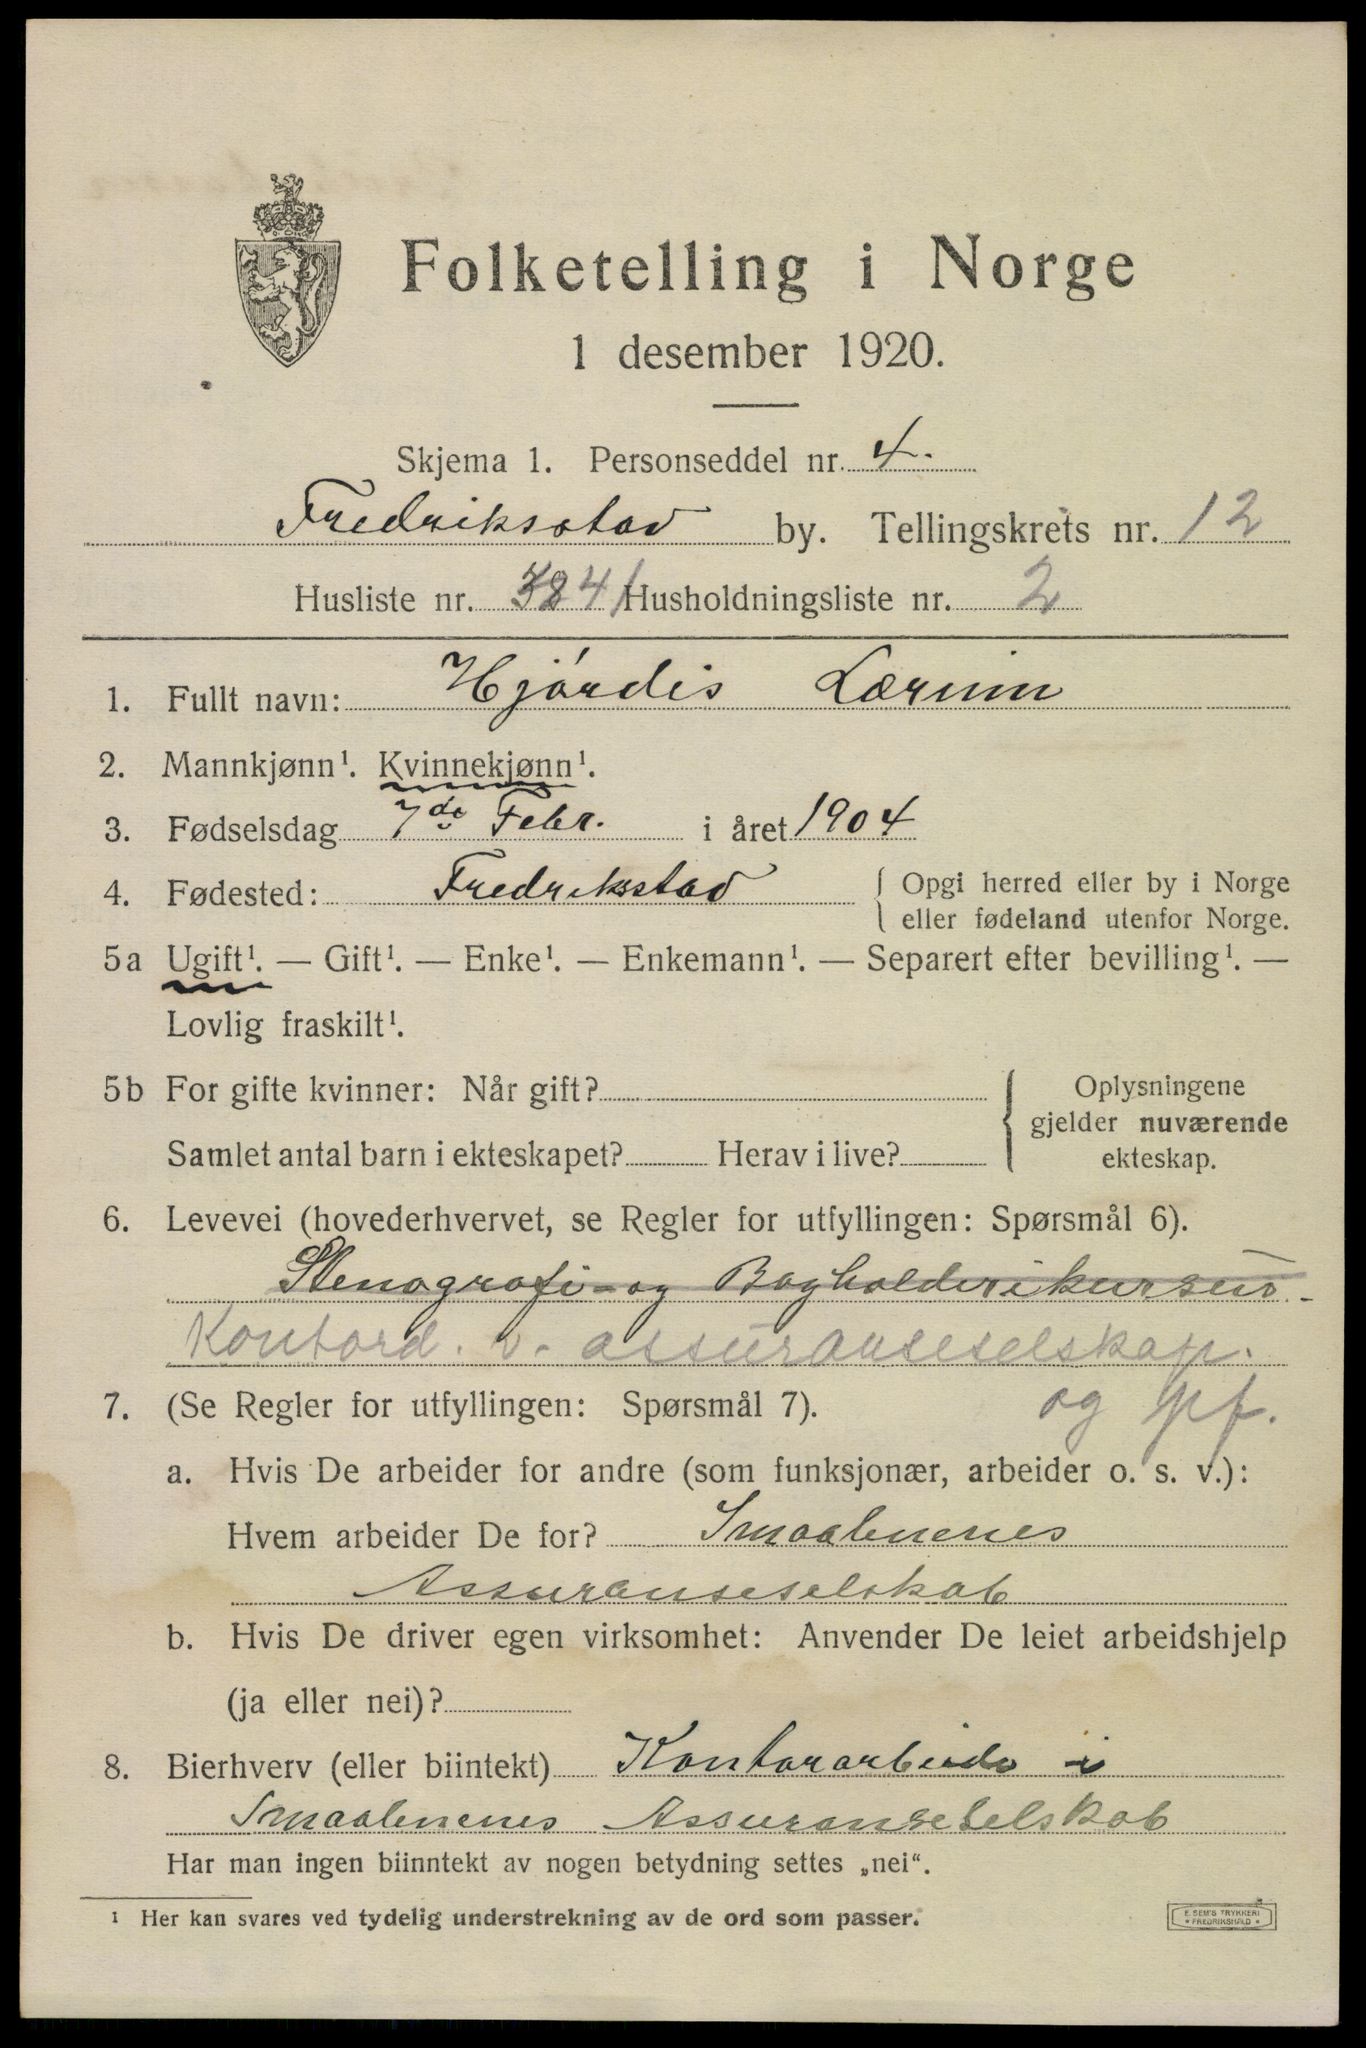 Folketelling i Norge
1 desember 1920.
Skjema 1. Personseddel nr. 4.
Fredriksstad by. Tellingskrets nr. 12
Husliste nr. 41 Husholdningsliste nr. 2
1. Fullt navn: Hjórdis Lærum
2. Mannkjønn¹. Kvinnekjønn¹.
3. Fødselsdag 7de Febr. i året 1904
4. Fødested: Fredriksstad { Opgi herred eller by i Norge
eller fødeland utenfor Norge.
5a Ugift¹. — Gift¹. — Enke¹. — Enkemann¹. — Separert efter bevilling¹. —
Lovlig fraskilt¹.
5b For gifte kvinner: Når gift? { Oplysningene
gjelder nuværende
Samlet antal barn i ekteskapet? Herav i live? ekteskap.
6. Levevei (hovederhvervet, se Regler for utfyllingen: Spørsmål 6).
Stenografi- og Bogholderikursus.
Kontord. v. assuranseselskap.
7. (Se Regler for utfyllingen: Spørsmål 7). og pf.
a. Hvis De arbeider for andre (som funksjonær, arbeider o. s. v.):
Hvem arbeider De for? Smaalenenes
Assuranseselskab
b. Hvis De driver egen virksomhet: Anvender De leiet arbeidshjelp
(ja eller nei)?
8. Bierhverv (eller biintekt) Kontorarbeide i
Smaalenenes Assuranseselskab
Har man ingen biinntekt av nogen betydning settes „nei“.
¹ Her kan svares ved tydelig understrekning av de ord som passer.
E. SEM'S TRYKKERI
* FREDRIKSHALD *